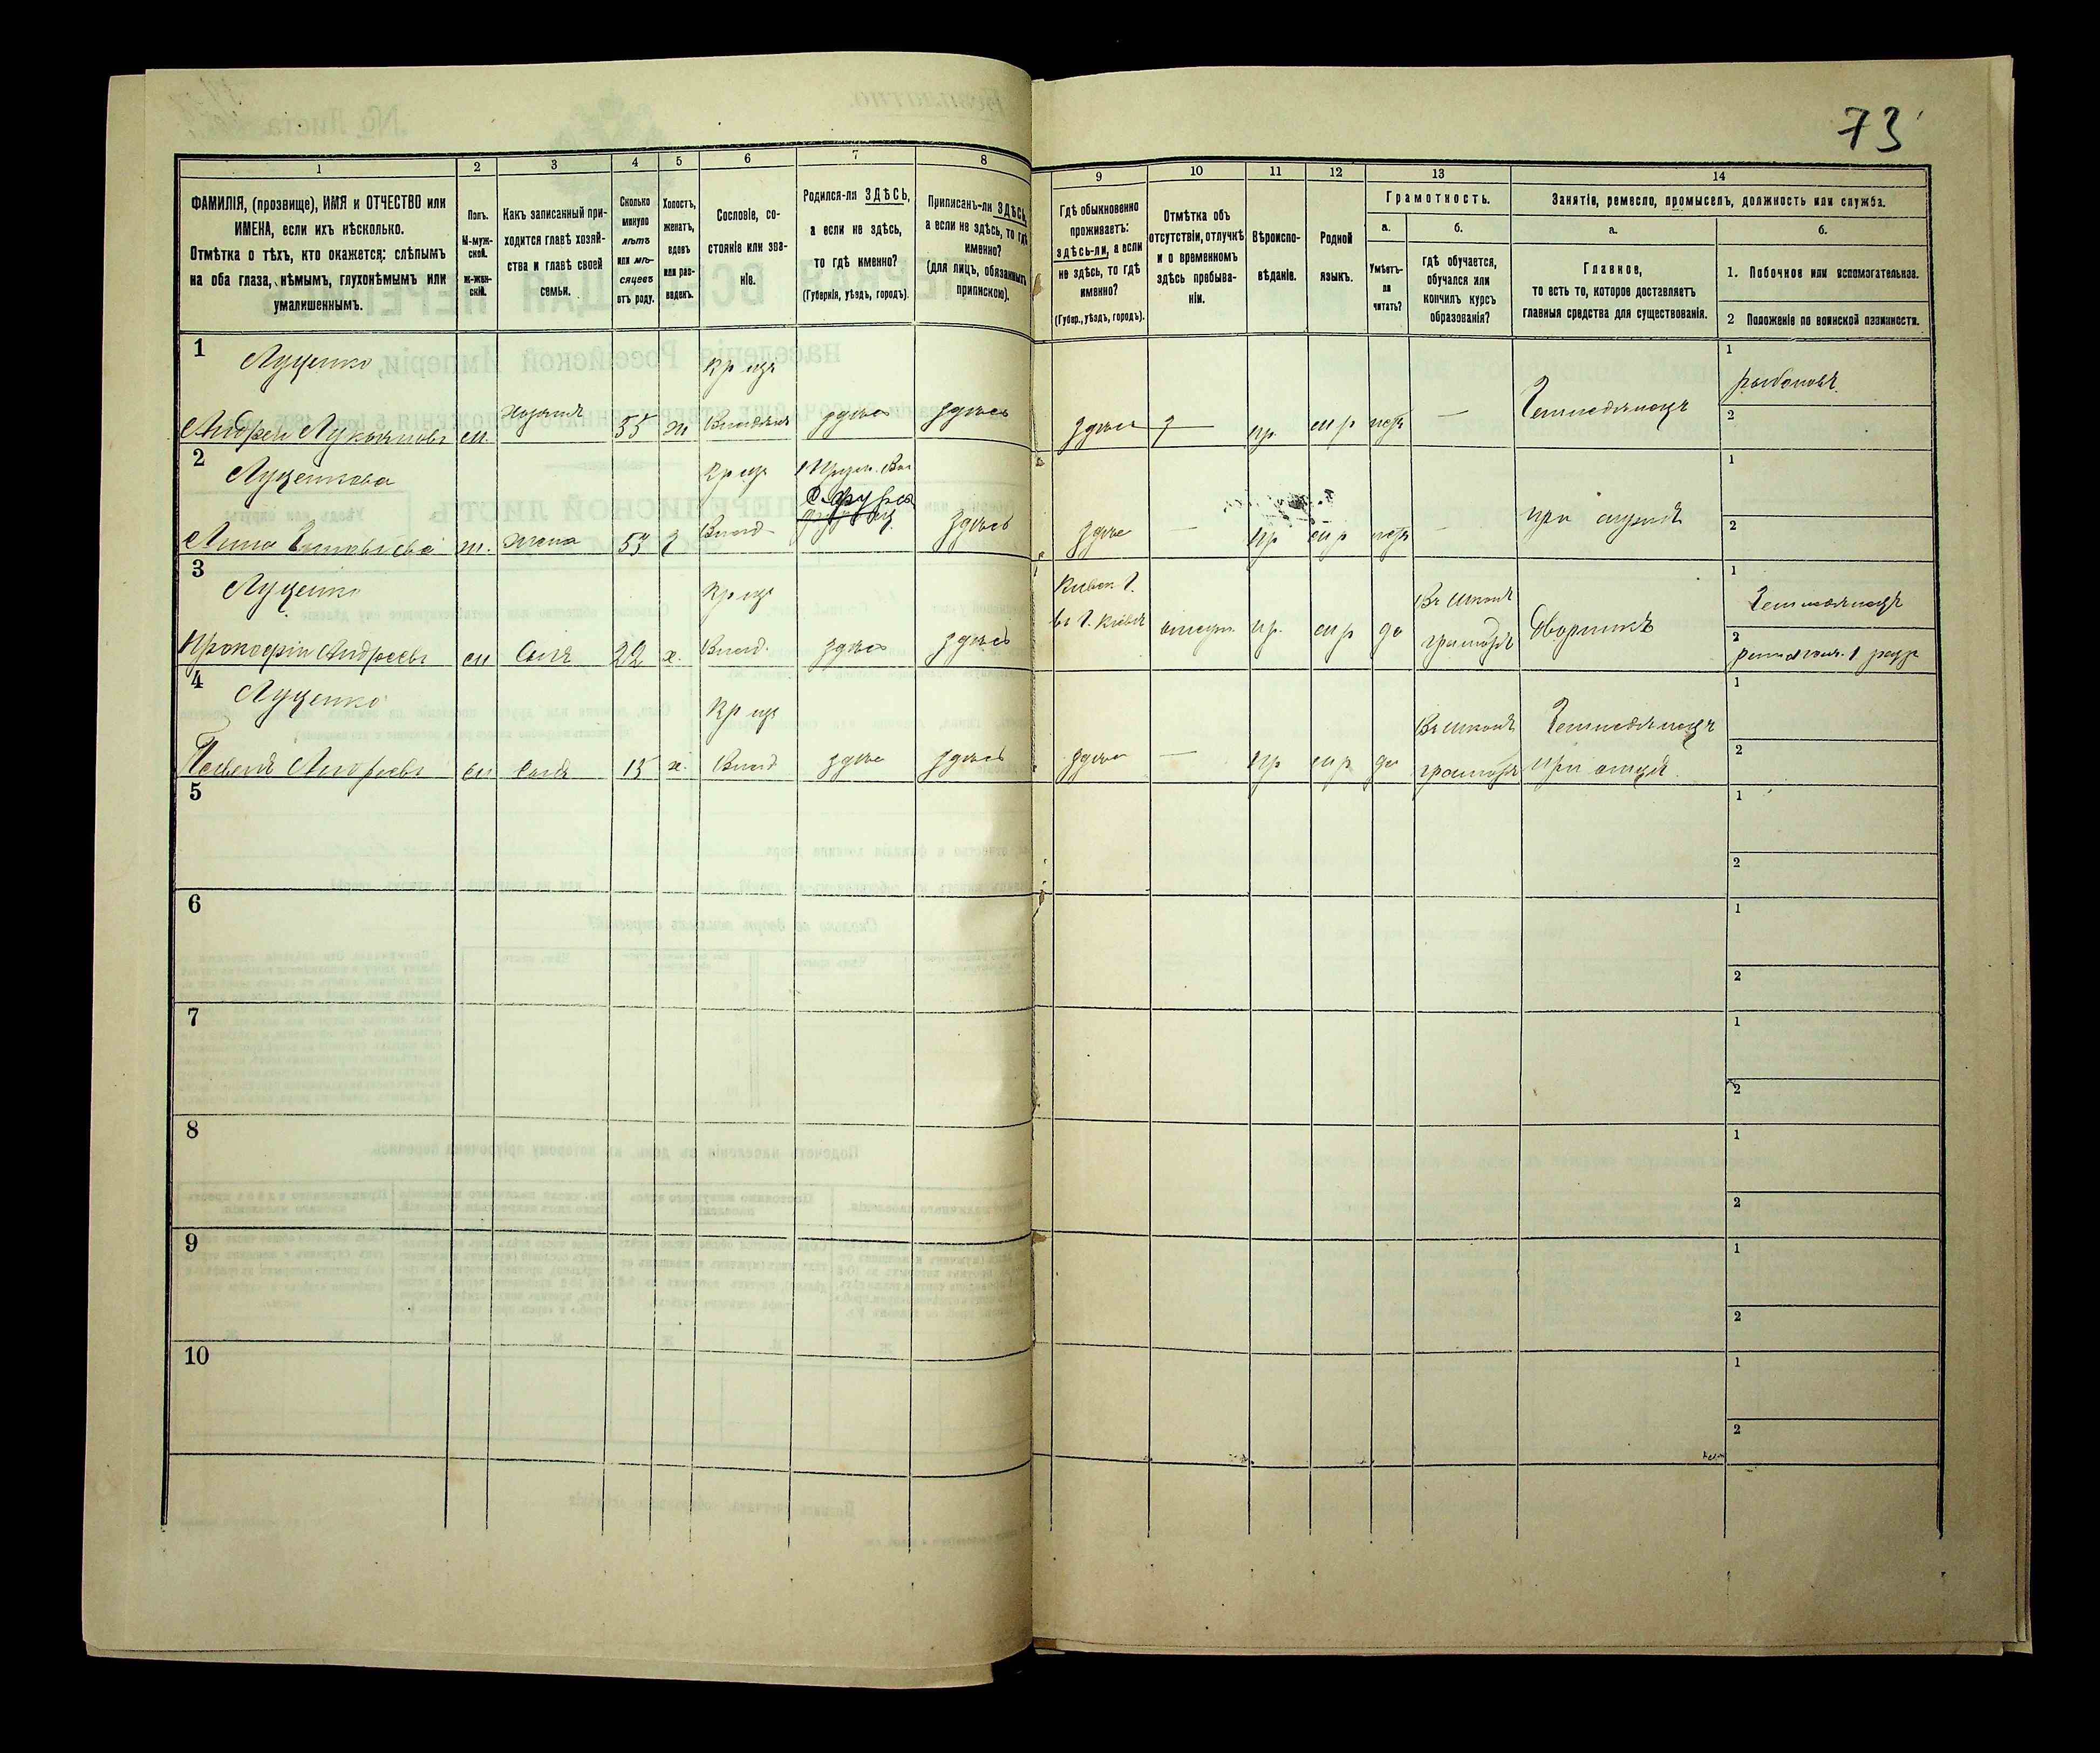 73
1
2
3
4
5
6
7
8
9
10
11
12
13
14
ФАМИЛІЯ, (прозвище), ИМЯ и ОТЧЕСТВО или
ИМЕНА, если ихъ нѣсколько.
Отмѣтка о тѣхъ, кто окажется: слѣпымъ
на оба глаза, нѣмымъ, глухонѣмымъ или
умалишеннымъ.
Полъ.
М-муж-
ской.
Ж-жен-
скій.
Какъ записанный при-
ходится главѣ хозяй-
ства и главѣ своей
семьи.
Сколько
минуло
лѣтъ
или мѣ-
сяцевъ
отъ роду.
Холостъ,
женатъ,
вдовъ
или раз-
веденъ.
Сословіе, со-
стояніе или зва-
ніе.
Родился-ли ЗДѢСЬ,
а если не здѣсь,
то гдѣ именно?
(Губернія, уѣздъ, городъ).
Приписанъ-ли ЗДѢСЬ,
а если не здѣсь, то гдѣ
именно?
(для лицъ, обязанныхъ
припискою).
Гдѣ обыкновенно
проживаетъ:
здѣсь-ли, а если
не здѣсь, то гдѣ
именно?
(Губер., уѣздъ, городъ).
Отмѣтка объ
отсутствіи, отлучкѣ
и о временномъ
здѣсь пребыва-
ніи.
Вѣроиспо-
вѣданіе.
Родной
языкъ.
Грамотность.
а.
Умѣетъ-
ли
читать?
б.
гдѣ обучается,
обучался или
кончилъ курсъ
образованія?
Занятіе, ремесло, промыселъ, должность или служба.
а.
Главное,
то есть то, которое доставляетъ
главныя средства для существованія.
б.
1. Побочное или вспомогательное.
2 Положеніе по воинской повинности.
1
Луценко
Андрей Лукьяновъ м Хозяинъ 55 ж Кр изъ
здѣсь здѣсь здѣсь пр. мр нетъ — Земледѣлецъ
1
2
2
Луценкова
Анна ж. Жена 55 Кр изъ
Влад здѣсь здѣсь — пр мр нетъ — при мужѣ
1
2
3
Луценко
Прокофій Андреевъ м Сынъ 22 х. Кр изъ
Влад. здѣсь здѣсь
Киевск. Г.
въ Г. Киевѣ пр. мр да
Въ школѣ
грамоты Дворникъ
1 Земледѣлецъ
2
4
Луценко
Павелъ Андреевъ м Сынъ 15 х. Кр изъ
Влад здѣсь здѣсь здѣсь — пр мр да
Въ школѣ
грамоты
Земледѣлецъ
при отцѣ.
1
2
5
1
2
6
1
2
7
1
2
8
1
2
9
1
2
10
1
2